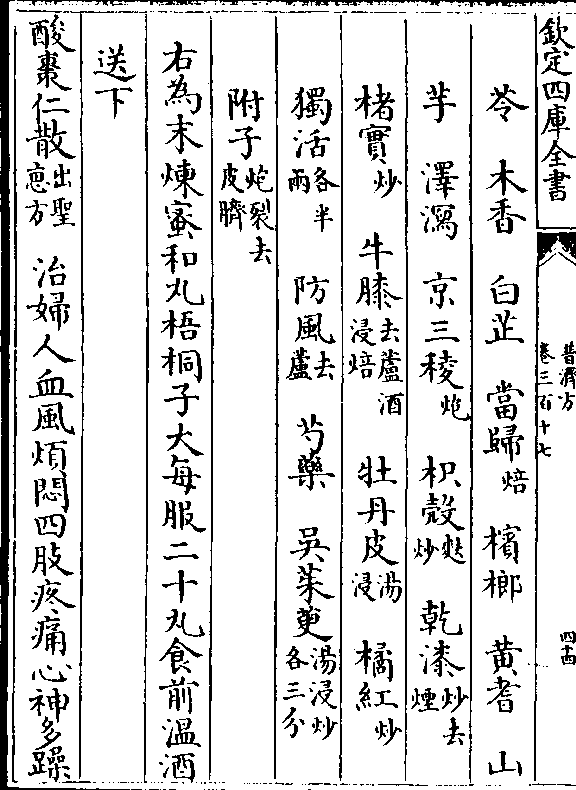 欽定四庫全書
普濟方
卷三百十七
四十四
苓 木香 白芷 當歸焙 檳榔 黄耆 山
芋 澤瀉 京三稜炮 枳殻麩炒 乾漆炒去煙
楮實炒 牛膝去蘆酒浸焙 牡丹皮湯浸 橘紅炒
獨活各半兩 防風去蘆 芍藥 吳茱萸湯浸炒各三分
附子炮裂去皮臍
右為末煉蜜和丸梧桐子大每服二十丸食前温酒
送下
酸棗仁散出聖惠方 治婦人血風煩悶四肢疼痛心神多躁